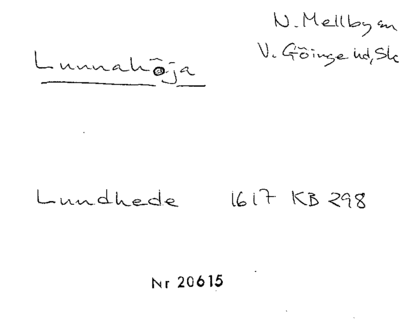 N. Mellby sn
Lunnahöja
V. Göinge hd, Sk
Lundhede 1617 KB 298
Nr 20615